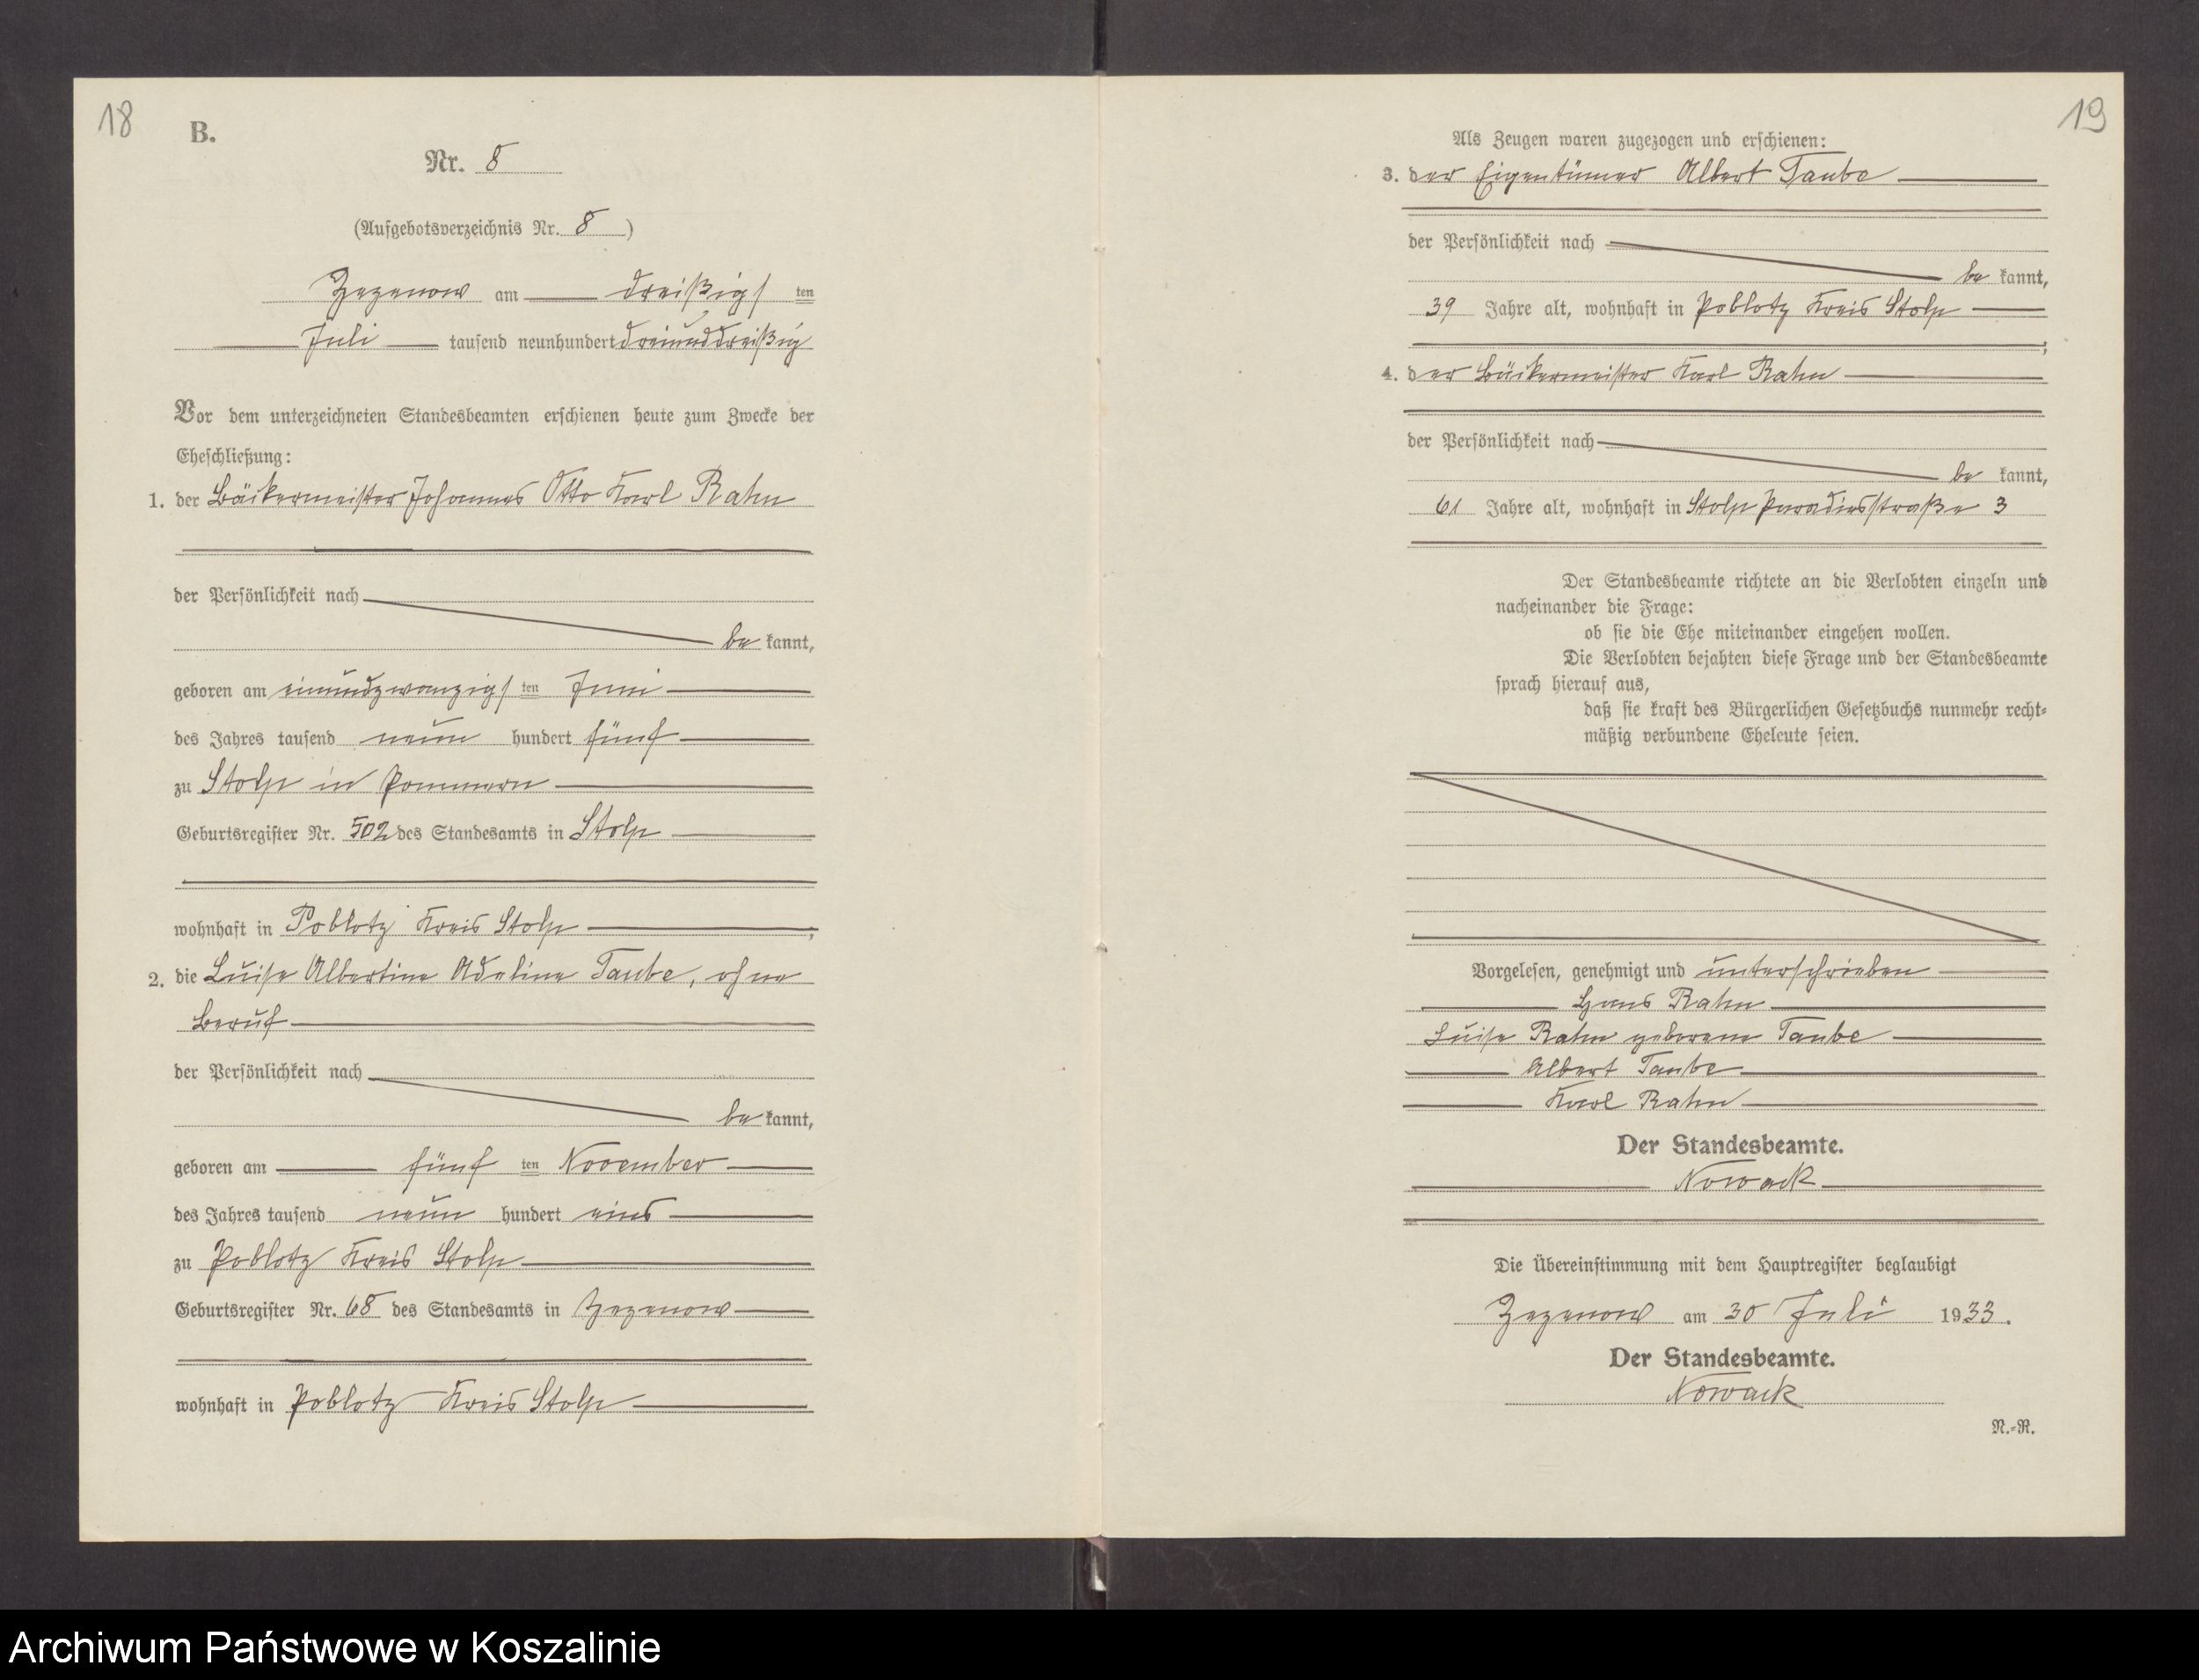 18
B.
Nr. 8
(Aufgebotsverzeichnis Nr. 8)
Zezenow am dreißigsten
Juli tausend neunhundert dreiunddreißig
Vor dem unterzeichneten Standesbeamten erschienen heute zum Zwecke der
Eheschließung:
1. der Bäckermeister Johannes Otto Karl Rahn
der Persönlichkeit nach
be kannt,
geboren am einundzwanzigsten Juni
des Jahres tausend neun hundert fünf
zu Stolp in Pommern
Geburtsregister Nr. 502 des Standesamts in Stolp
wohnhaft in Poblotz Kreis Stolp,
2. die Luise Albertine Adeline Taube, ohne
Beruf
der Persönlichkeit nach
be kannt,
geboren am fünf ten November
des Jahres tausend neun hundert eins
zu Poblotz Kreis Stolp
Geburtsregister Nr. 68 des Standesamts in Zezenow
wohnhaft in Poblotz Kreis Stolp
19
Als Zeugen waren zugezogen und erschienen:
3. der Eigentümer Albert Taube
der Persönlichkeit nach
be kannt,
39 Jahre alt, wohnhaft in Poblotz Kreis Stolp
;
4. der Bäckermeister Karl Rahn
der Persönlichkeit nach
be kannt,
61 Jahre alt, wohnhaft in Stolp Paradiesstraße 3
Der Standesbeamte richtete an die Verlobten einzeln und
nacheinander die Frage:
ob sie die Ehe miteinander eingehen wollen.
Die Verlobten bejahten diese Frage und der Standesbeamte
sprach hierauf aus,
daß sie kraft des Bürgerlichen Gesetzbuchs nunmehr recht-
mäßig verbundene Eheleute seien.
Vorgelesen, genehmigt und unterschrieben
Hans Rahn
Luise Rahn geborene Taube
Albert Taube
Karl Rahn
Der Standesbeamte.
Nowack
Die Übereinstimmung mit dem Hauptregister beglaubigt
Zezenow am 30 Juli 1933.
Der Standesbeamte.
Nowack
N.-R.
Archiwum Państwowe w Koszalinie